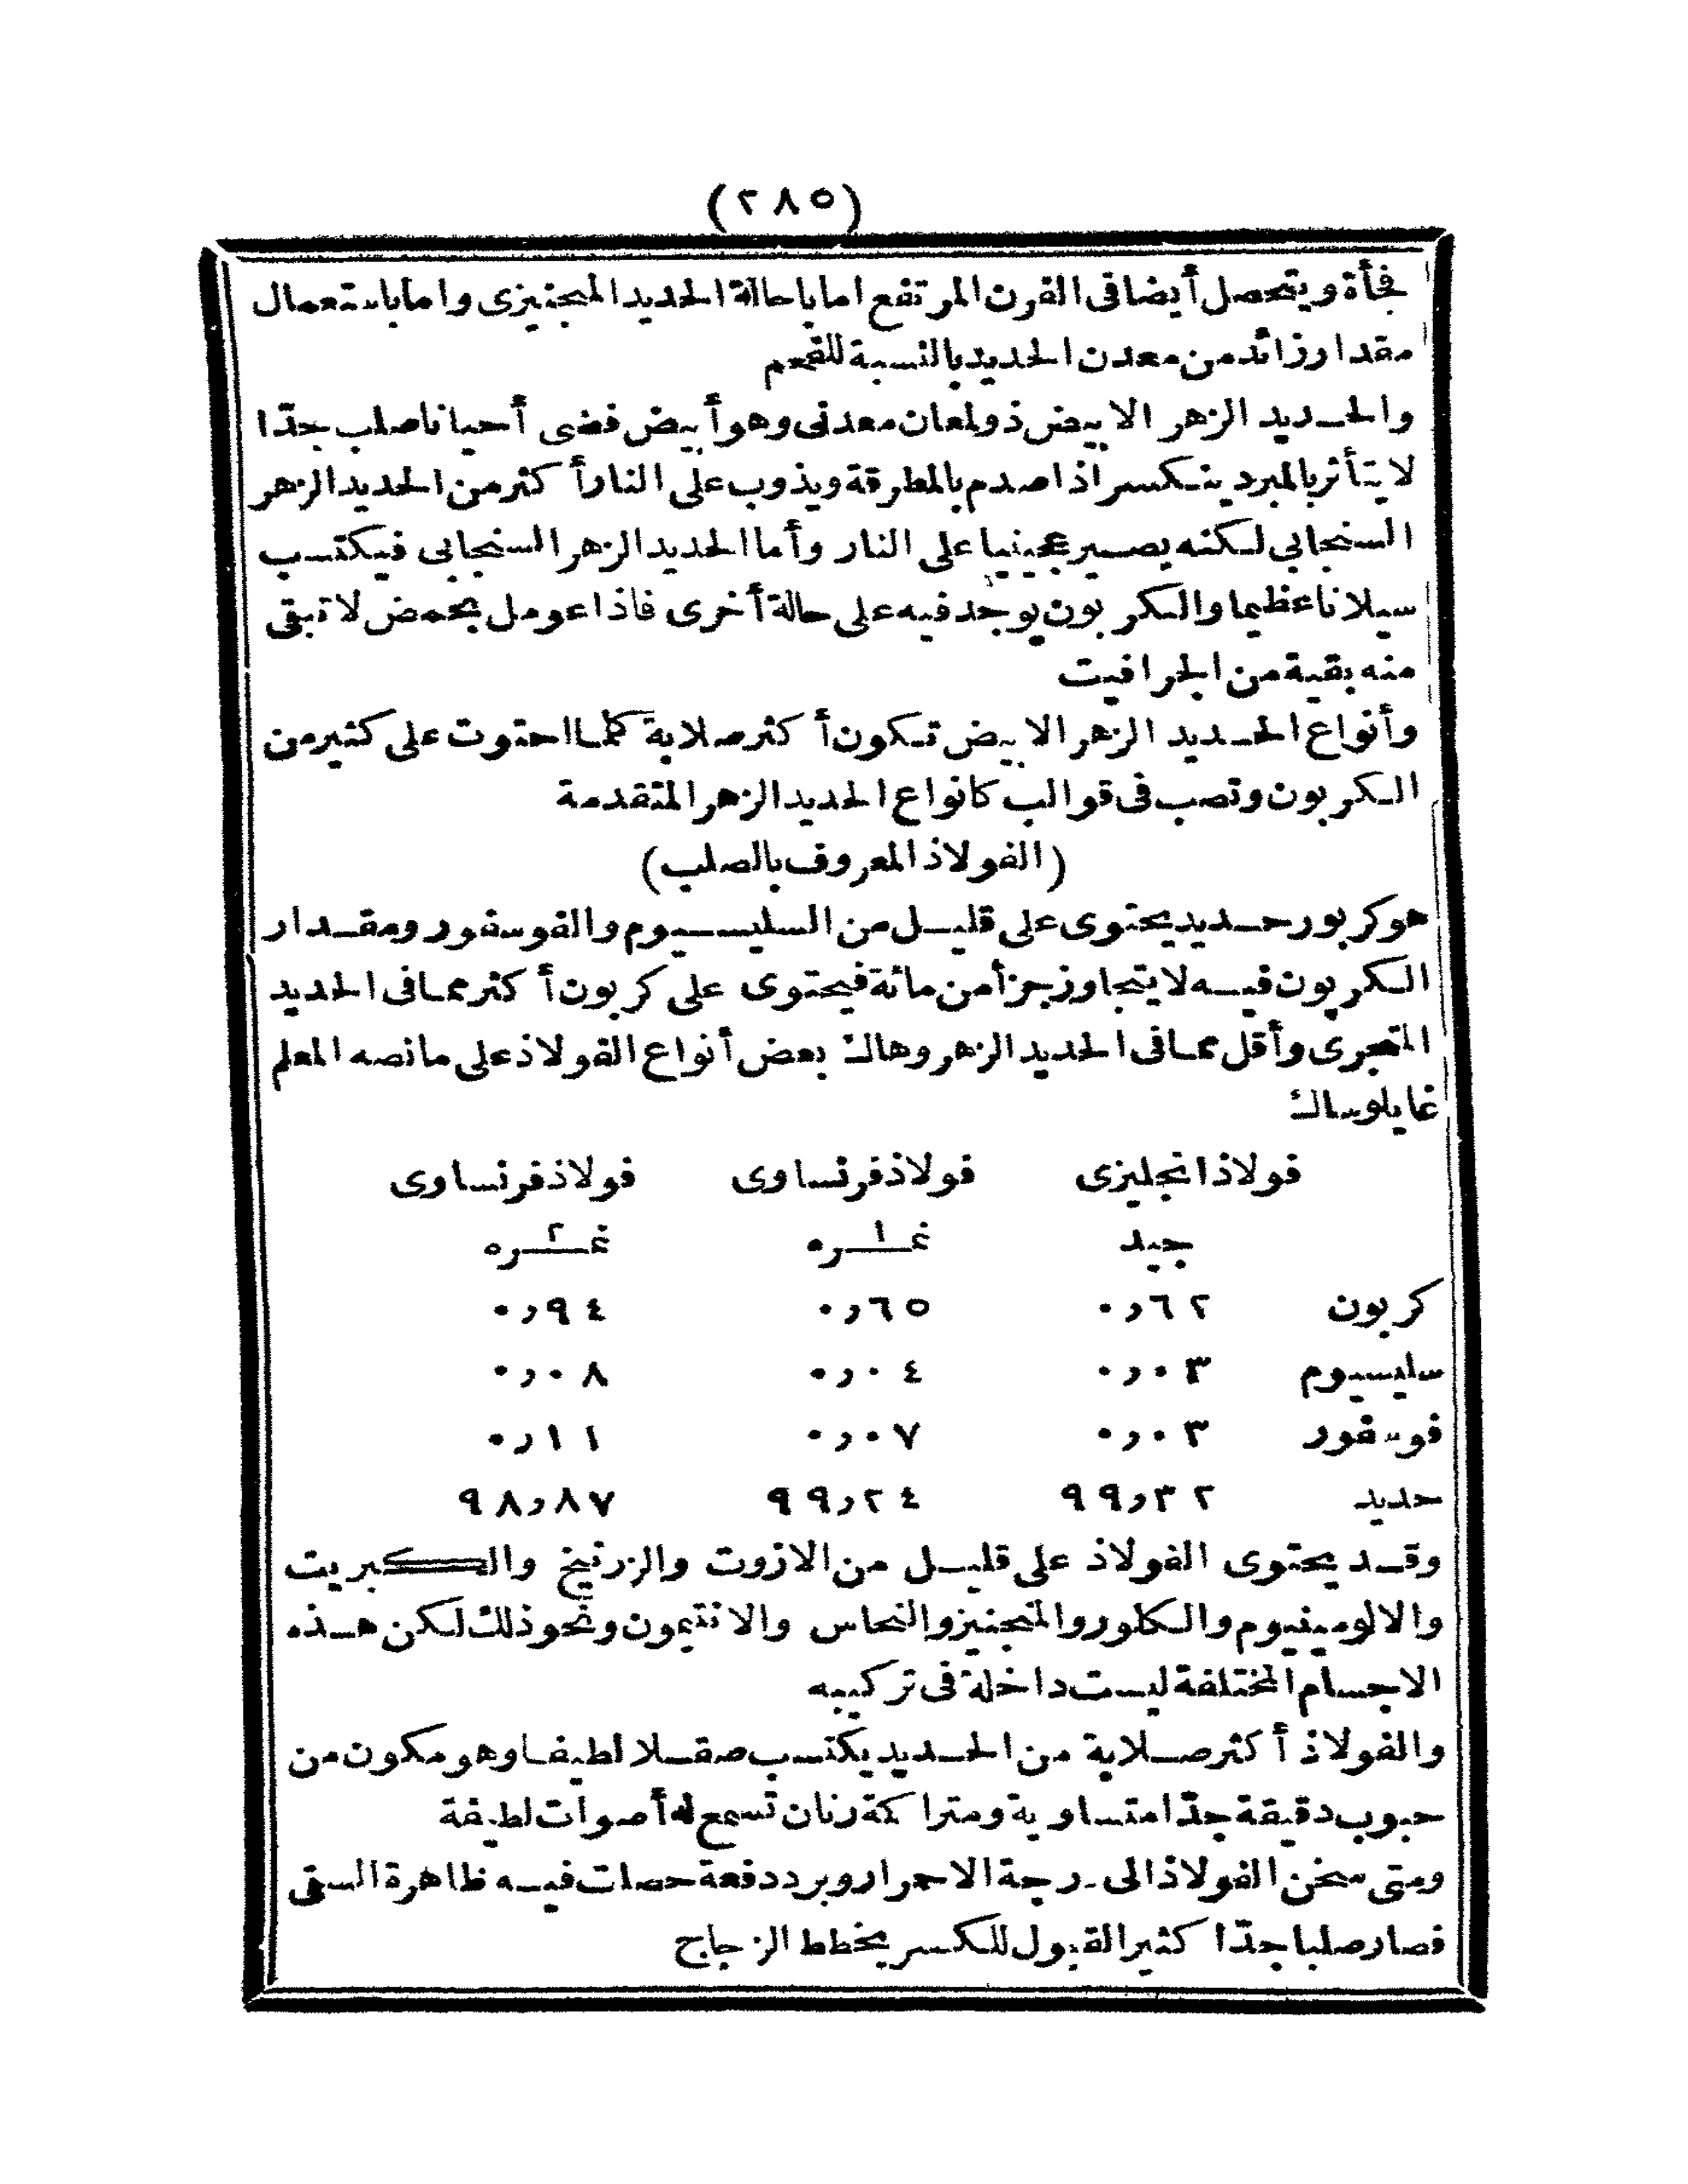 (٢٨٥)
فجأة ويتحصل أيضا فى القرن المرتفع اما باحالة الحديد المنجنيزى واما باستعمال
مقدار زائد من معدن الحديد بالنسبة للفحم
والحديد الزهر الابيض ذولمعان معدنى وهو أبيض فضى أحيانا صلب جدّا
لا يتأثر بالمبرد ينكسر اذا صدم بالمطرقة ويذوب على النار أكثر من الحديد الزهر
السنجابى لكنه يصير عجينيا على النار وأما الحديد الزهر السنجابى فيكتسب
سيلانا عظيما والكربون يوجد فيه على حالة أخرى فاذا عومل بحمض لا تبقى
منه بقية من الجرافيت
وأنواع الحديد الزهر الابيض تكون أكثر صلابة كلما احتوت على كثير من
الكربون وتصب فى قوالب كانواع الحديد الزهر المتقدمة
(الفولاذ المعروف بالصلب)
هو كربور حديد يحتوى على قليل من السليسيوم والفوسفور ومقدار
الكربون فيه لا يتجاوز جزأ من مائة فيحتوى على كربون أكثر مما فى الحديد
المتجرى وأقل مما فى الحديد الزهر وهاك بعض أنواع الفولاذ على ما نصه المعلم
غايلوساك
فولاذ انجليزى فولاذ فرنساوى فولاذ فرنساوى
جيد نمرة ١ نمرة ٢
كربون ٠٫٦٢ ٠٫٦٥ ٠٫٩٤
سليسيوم ٠٫٠٣ ٠٫٠٤ ٠٫٠٨
فوسفور ٠٫٠٣ ٠٫٠٧ ٠٫١١
حديد ٩٩٫٣٢ ٩٩٫٢٤ ٩٨٫٨٧
وقد يحتوى الفولاذ على قليل من الازوت والزرنيخ والكبريت
والالومينيوم والكلور والمنجنيز والنحاس والانتيمون ونحو ذلك لكن هذه
الاجسام المختلفة ليست داخلة فى تركيبه
والفولاذ أكثر صلابة من الحديد يكتسب صقلا لطيفا وهو مكون من
حبوب دقيقة جدّا متساوية ومتراكمة رنان تسمع له أصوات لطيفة
ومتى سخن الفولاذ الى درجة الاحمرار وبرد دفعة حصلت فيه ظاهرة السقى
فصار صلبا جدّا كثير القبول للكسر يخطط الزجاج